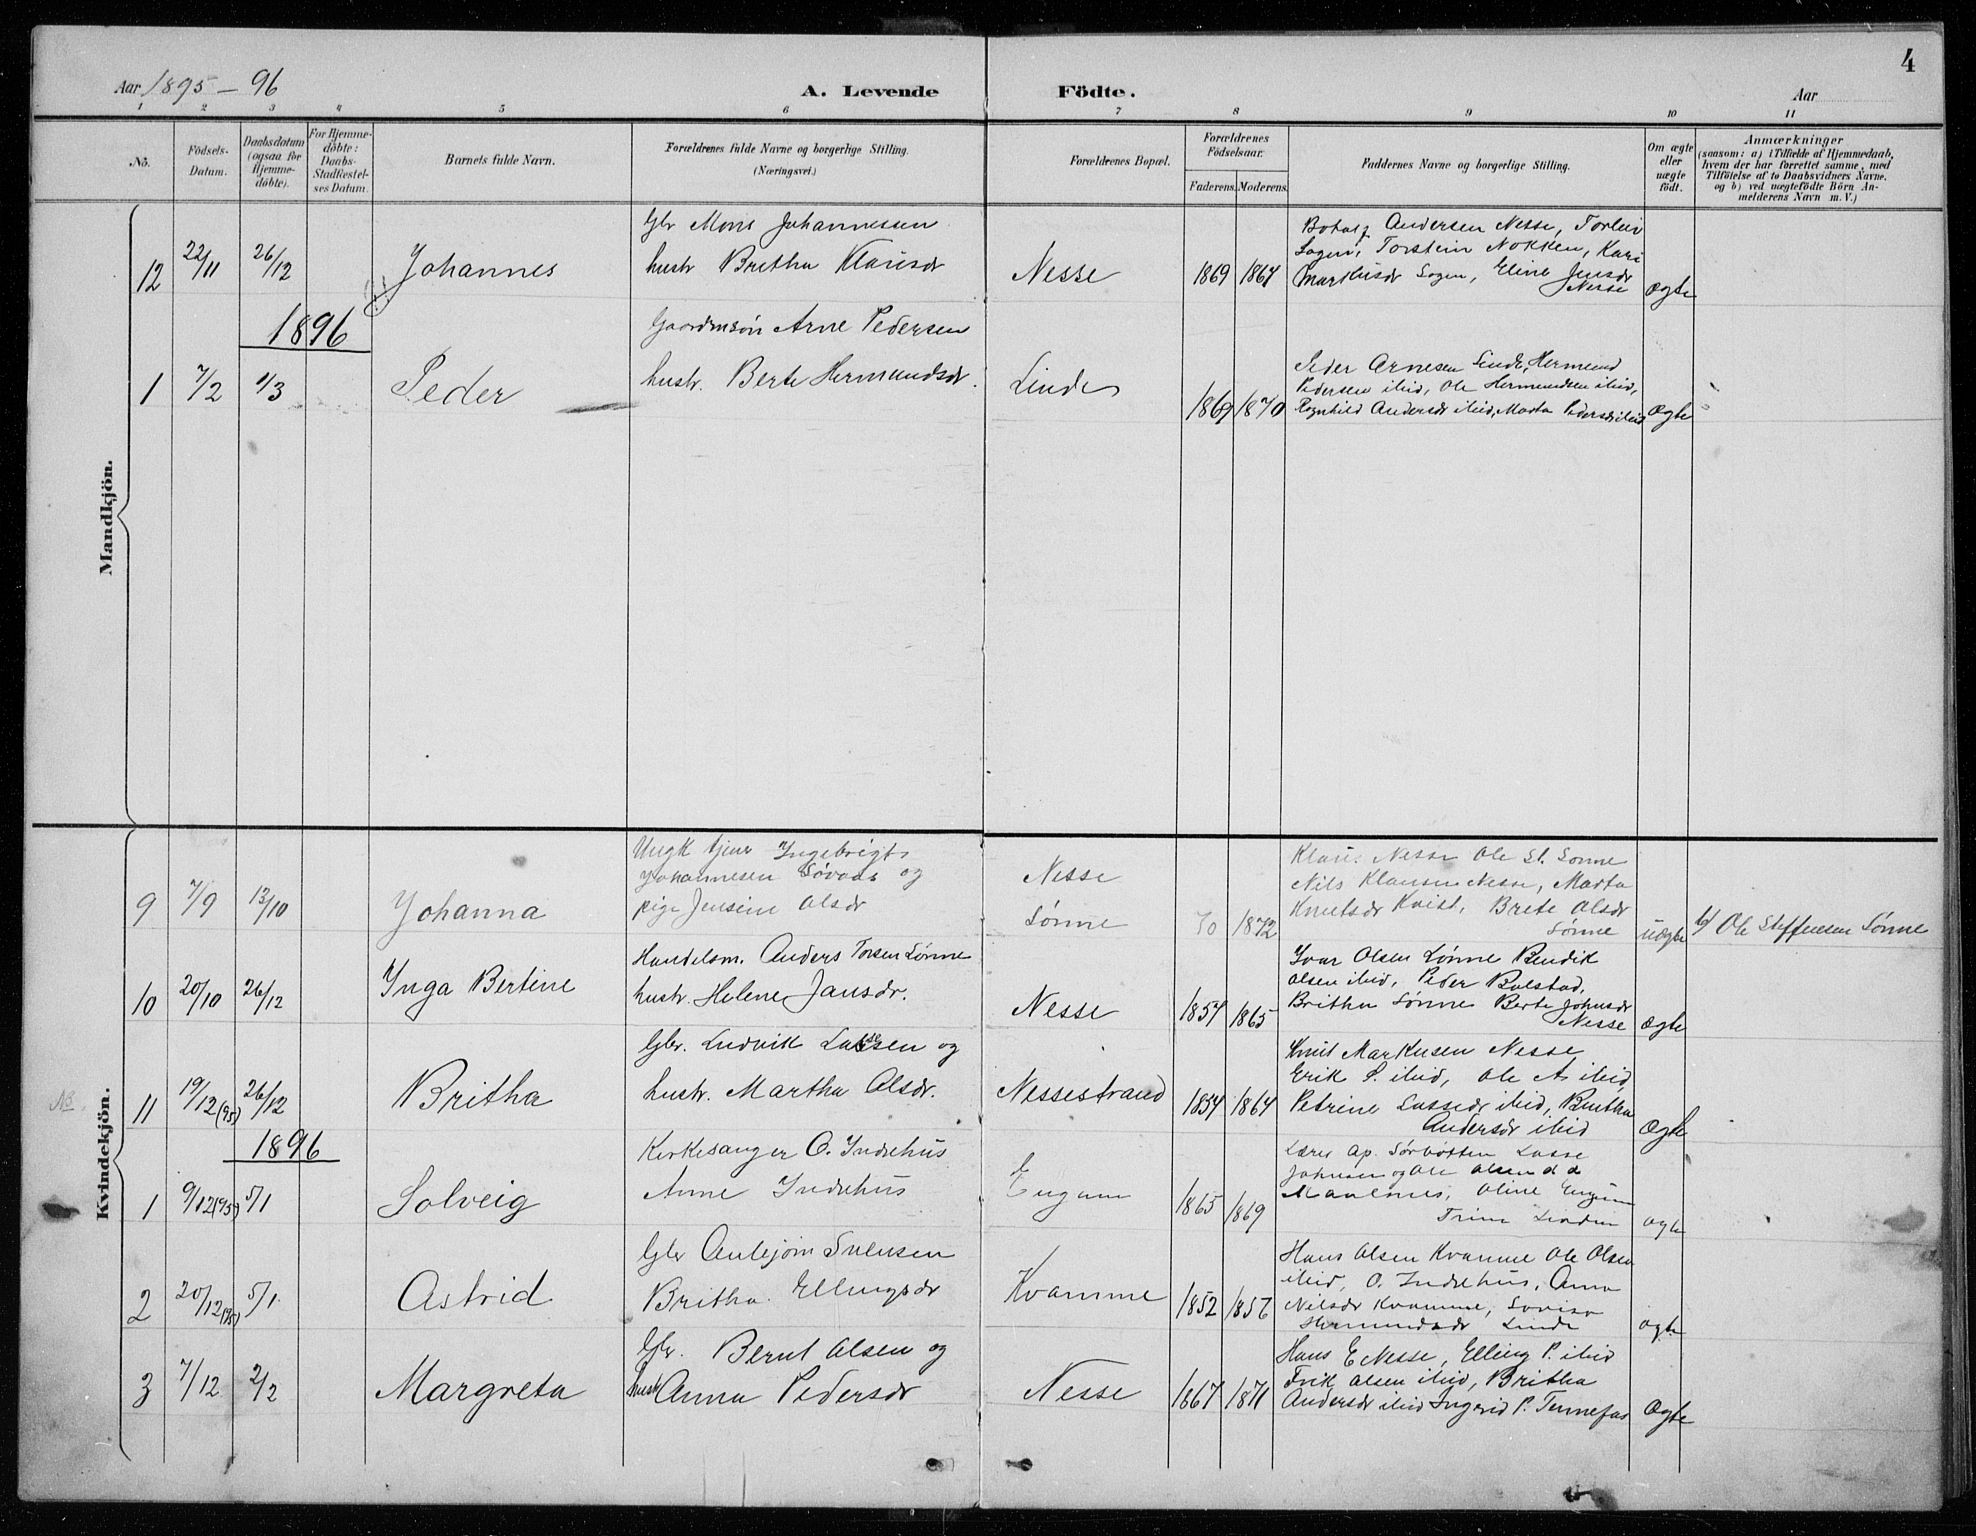 4
Aar 1895–96
A. Levende Födte.
Aar
1 2 3 4 5 6 7 8 9 10 11
No.
Födsels-Datum.
Daabsdatum (ogsaa for Hjemme-döbte).
For Hjemme-döbte: Daabs-Stadfæstel-ses Datum.
Barnets fulde Navn.
Forældrenes fulde Navne og borgerlige Stilling. (Næringsvei.)
Forældrenes Bopæl.
Forældrenes Födselsaar.
Faderens. Moderens.
Faddernes Navne og borgerlige Stilling.
Om ægte eller uægte födt.
Anmærkninger
(saasom: a) i Tilfælde af Hjemmedaab, hvem der har forrettet samme, med Tilföielse af to Daabsvidners Navne, og b) ved uægtefödte Börn An-melderens Navn m. V.)
Mandkjön.
Gbr Mons Johannessen
12 22/11 26/12 Johannes hustr Britha Klausdr Nesse 1869 1867
Botolf Andersen Nesse, Torleiv
Sogn, Torstein Nokken, Kari
Markusdr Sogn, Eline Jensdr
Nesse
ægte
1896
Gaardmsön Arne Pedersen
1 7/2 1/3 Peder hustr. Berte Hermundsdr. Linde 1869 1870
Peder Arnesen Linde, Hermund
Pedersen ibid, Ole Hermundsen ibid,
Ragnhild Andersdr ibid, Marta Pedersdr ibid
ægte
Kvindekjön.
Ungk tjener Ingebrigt
Johannesen Søvaas og
9 7/9 13/10 Johanna pige Jensine Olsdr
Nesse
Sønne
70 1872
Klaus Nesse Ole St. Sønne
Nils Klausen Nesse, Marta
Knutsdr Kvist, Brete Olsdr
Sønne
uægte
b/ Ole Steffensen Sønne
Handelsm. Anders Torsen Sønne
10 20/10 26/12 Inga Bertine hustr. Helene Jansdr. Nesse 1857 1865
Ivar Olsen Sønne Bendik
Olsen ibid, Peder Bolstad,
Britha Sønne Berte Johnsdr
Nesse
ægte
Gbr. Ludvik Lassesen og
11 19/12 (95) 26/12 Britha hustr. Martha Olsdr. Nessestrand 1854 1864
Knut Markusen Nesse
Erik P. ibid, Ole A ibid,
Petrine Lassedr ibid, Britha
Andersdr ibid
ægte
1896
Kirkesanger O. Indrehus
1 9/12 (95) 5/1 Solveig Anne Indrehus Engum 1865 1869
Lærer Ap. Sørbotten Lasse
Johnsen og Ole Olsen d d
Maalsnes, Oline Engum
Trine Linden
ægte
Gbr Anbjörn Svensen
2 20/12 (95) 5/1 Astrid Britha Ellingsdr Kvamme 1852 1856
Hans Olsen Kvamme Ole Olsen
ibid, O. Indrehus, Anna
Nilsdr Kvamme, Lovisa
Hermundsdr Linde
ægte
Gbr. Bernt Olsen og
3 7/12 2/2 Margreta hustr Anna Pedersdr Nesse 1867 1871
Hans E Nesse, Elling P. ibid
Erik Olsen ibid, Britha
Andersdr ibid Ingrid P. Tennefos
ægte